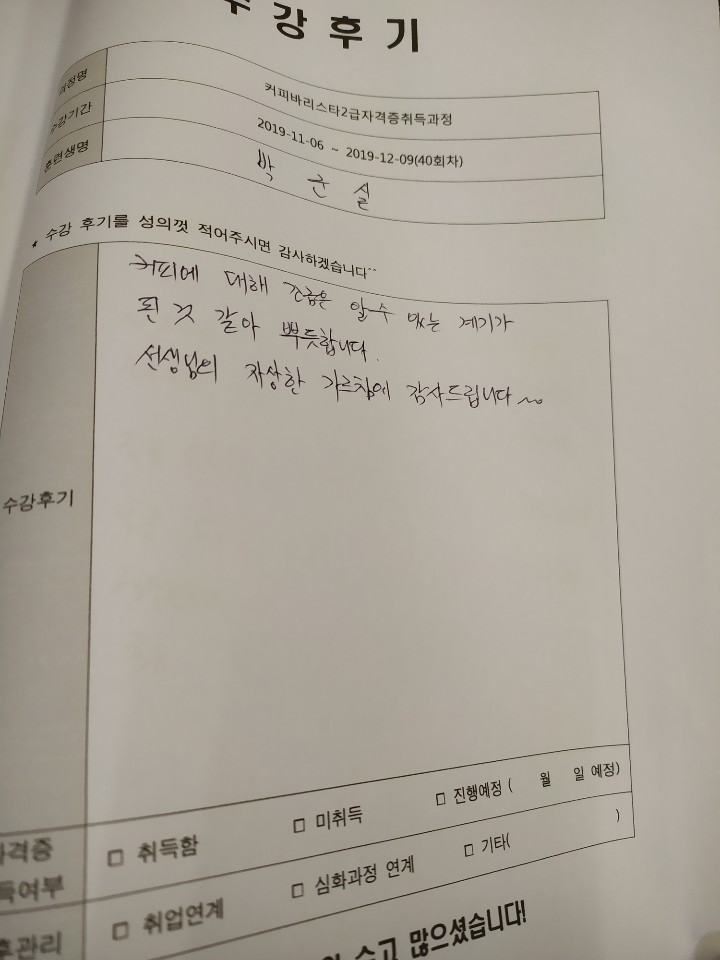 수강후기
과정명 커피바리스타2급자격증취득과정
수강기간 2019-11-06 ~ 2019-12-09(40회차)
훈련생명 박 근 실
★ 수강 후기를 성의껏 적어주시면 감사하겠습니다^^
커피에 대해 조금은 알수 있는 계기가
된 것 같아 뿌듯합니다.
선생님의 자상한 가르침에 감사드립니다~
수강후기
자격증
득여부
□ 취득함 □ 미취득 □ 진행예정 ( 월 일 예정)
후관리 □ 취업연계 □ 심화과정 연계 □ 기타( )
수고 많으셨습니다!